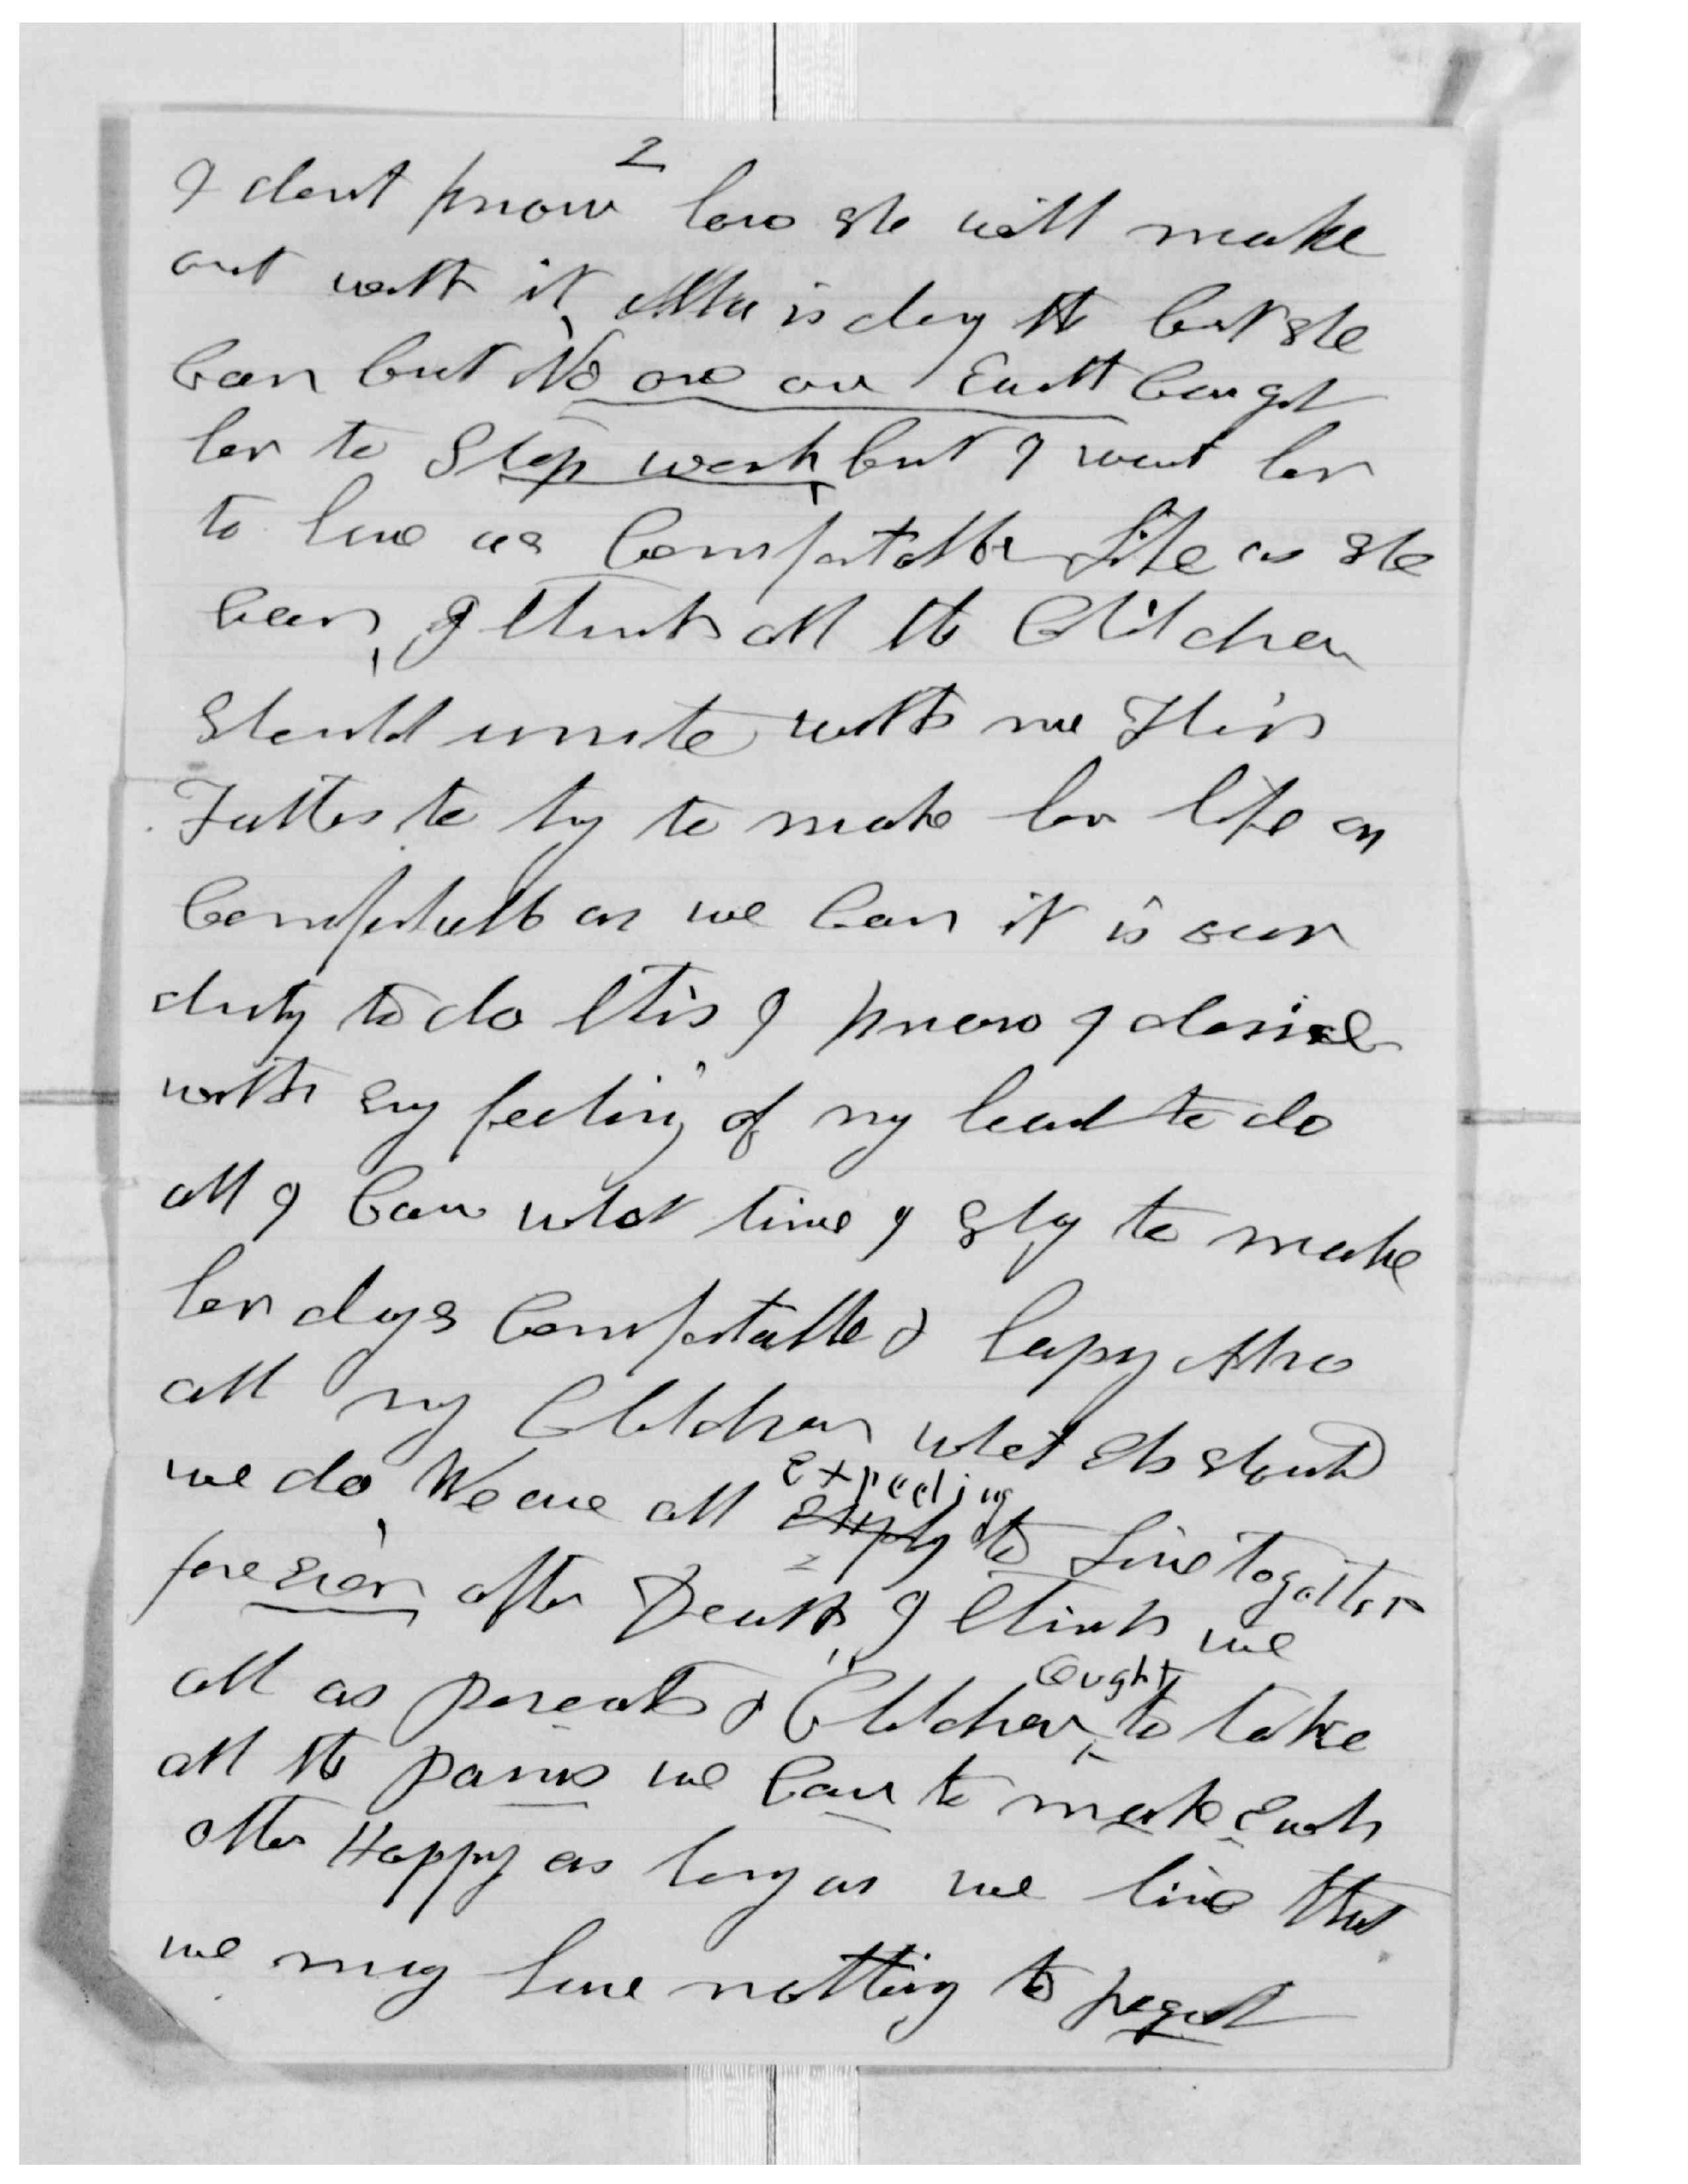 2
I dont know how she will make
out with it, Alta is doing the best she
can but No one on Earth can get
her to Stop work, but I want her
to have as Comfortable Life as she
can, I think all the Children
Should unite with me Their
Father to try to make her life as
Comfortable as we can it is our
duty to do this I know I desire
with every feeling of my heart to do
all I can what time I stay to make
her days Comfortable & hapy Also
all my Children what Els should
we do, We are all Expecting to Live together
for Ever after Death, I think we
all as Parents & Children, ought to take
all the pains we can to make Each
other Happy as long as we live that
we may have nothing to regret